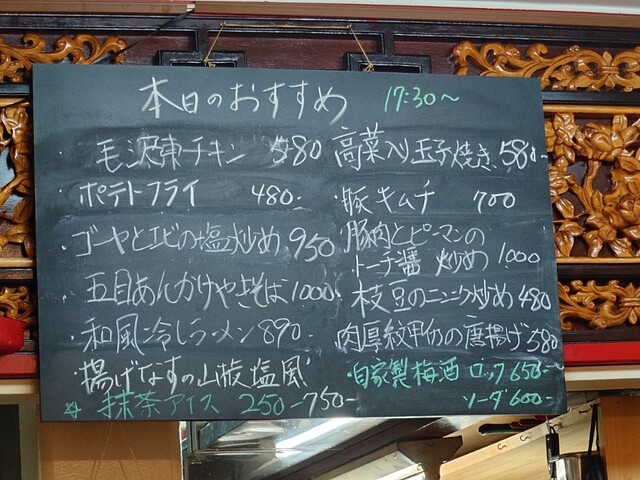 本日のおすすめ 17:30〜
・毛沢東チキン 580
・ポテトフライ 480-
・ゴーヤとエビの塩炒め 950
・五目あんかけやきそば 1000-
・和風冷しラーメン 890-
・揚げなすの山椒塩風 750-
☆抹茶アイス 250-
高菜入り玉子焼き 580-
・豚キムチ 700
・豚肉とピーマンの
トーチ醤 炒め 1000
・枝豆のニンニク炒め 480
肉厚紋甲イカの唐揚げ 580
・自家製梅酒 ロック 650-
ソーダ 600-